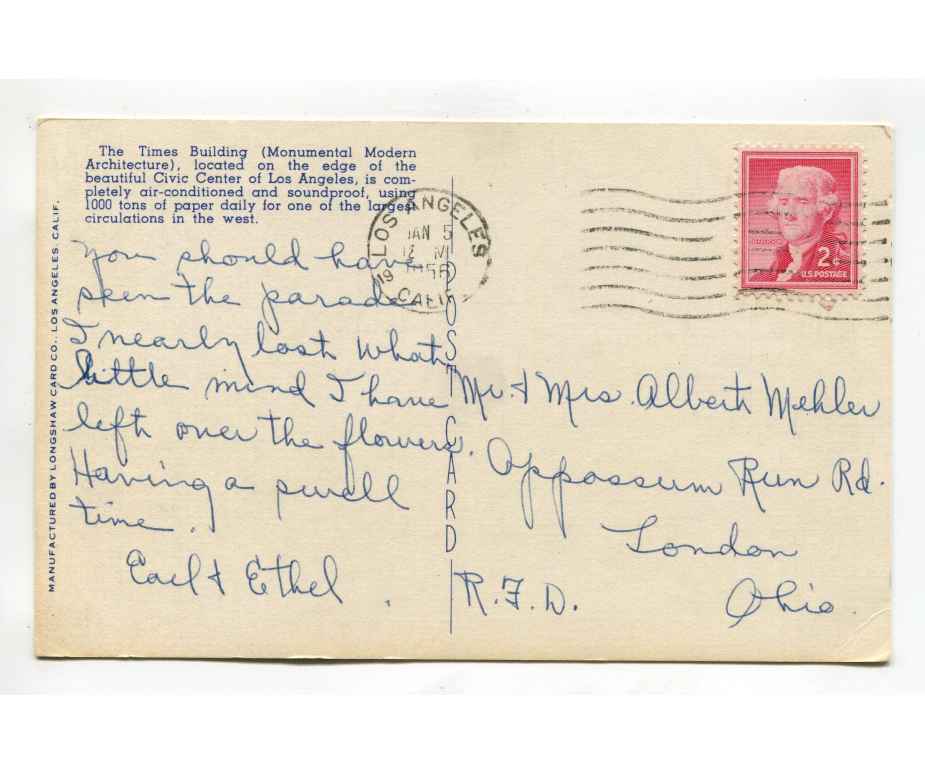 The Times Building (Monumental Modern
Architecture), located on the edge of the
beautiful Civic Center of Los Angeles, is com-
pletely air-conditioned and soundproof, using
1000 tons of paper daily for one of the largest
circulations in the west.
MANUFACTURED BY LONGSHAW CARD CO., LOS ANGELES, CALIF.
You should have
seen the parade
I nearly lost what
little mind I have
left over the flowers.
Having a swell
time.
Earl & Ethel.
POST CARD
LOS ANGELES
JAN 5
12 M
1956
CALIF
JEFFERSON
2¢
U.S. POSTAGE
Mr. & Mrs. Albert Mehler
Oppossum Run Rd.
London
R.F.D. Ohio.